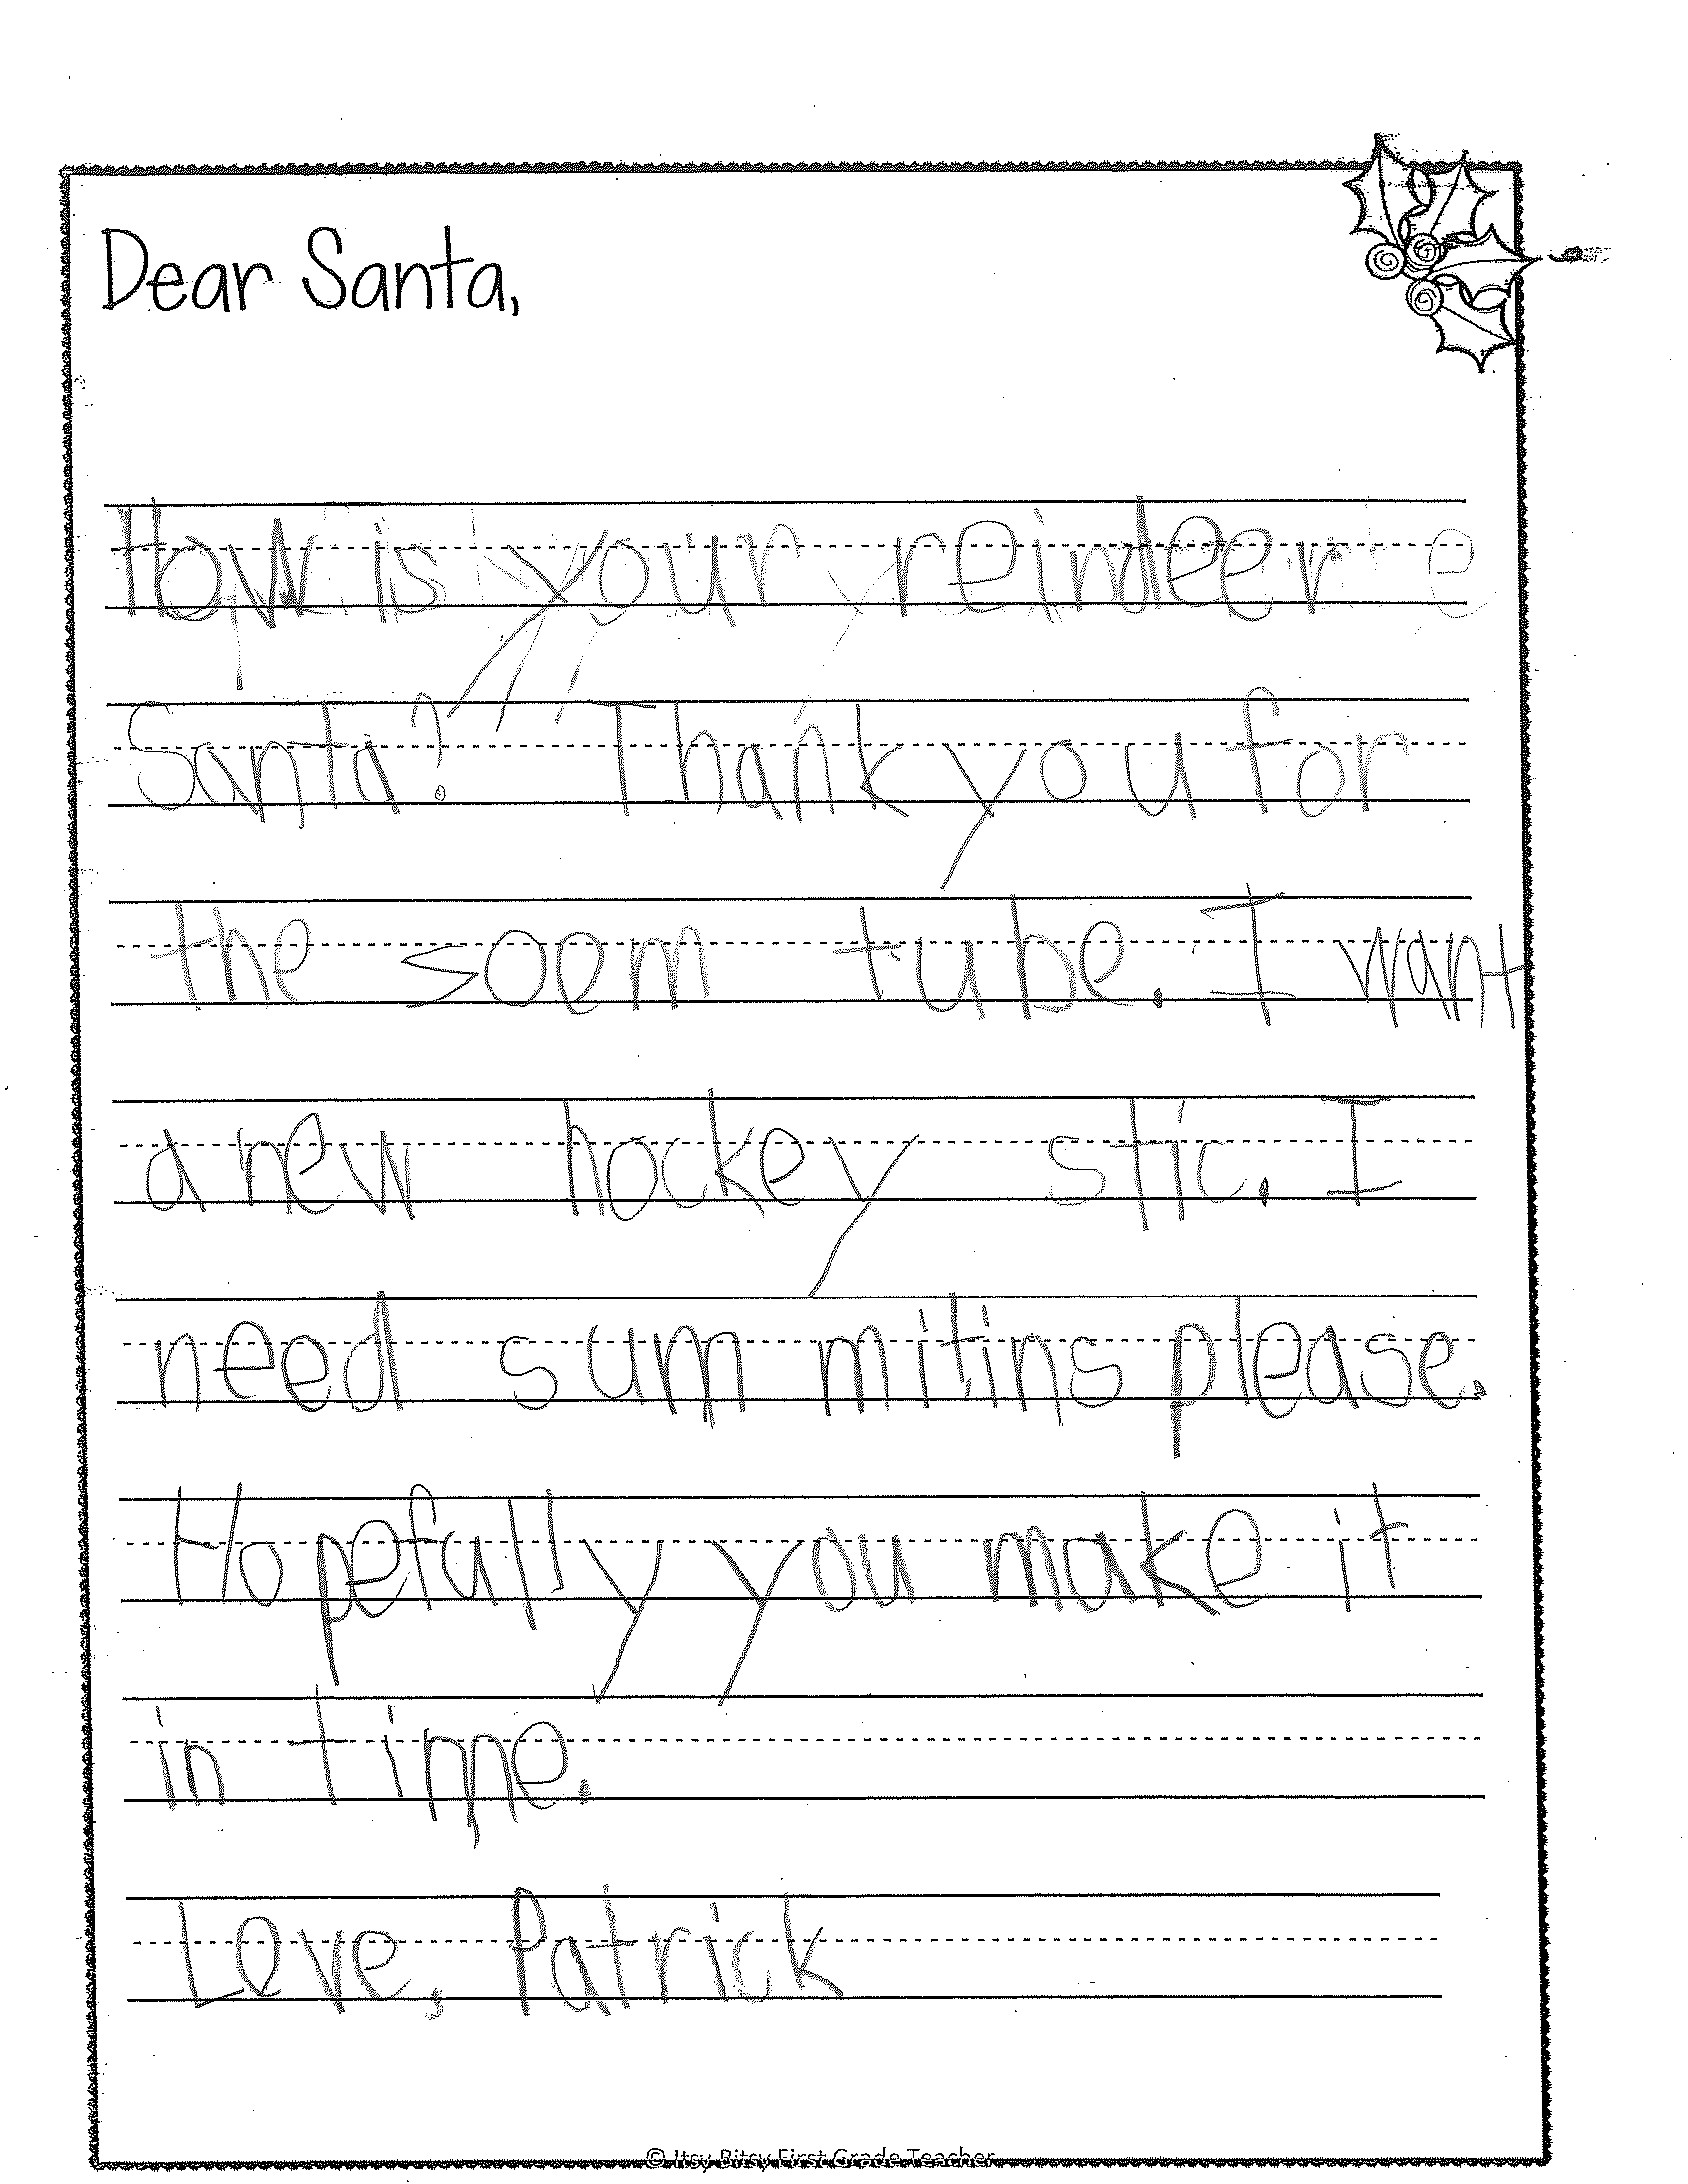 Dear Santa,
How is your reindeer
Santa? Thank you for
the soem tube. I want
a new hockey stic. I
need sum mitins please.
Hopefully you make it
in time.
Love, Patrick
© Itsy Bitsy First Grade Teacher